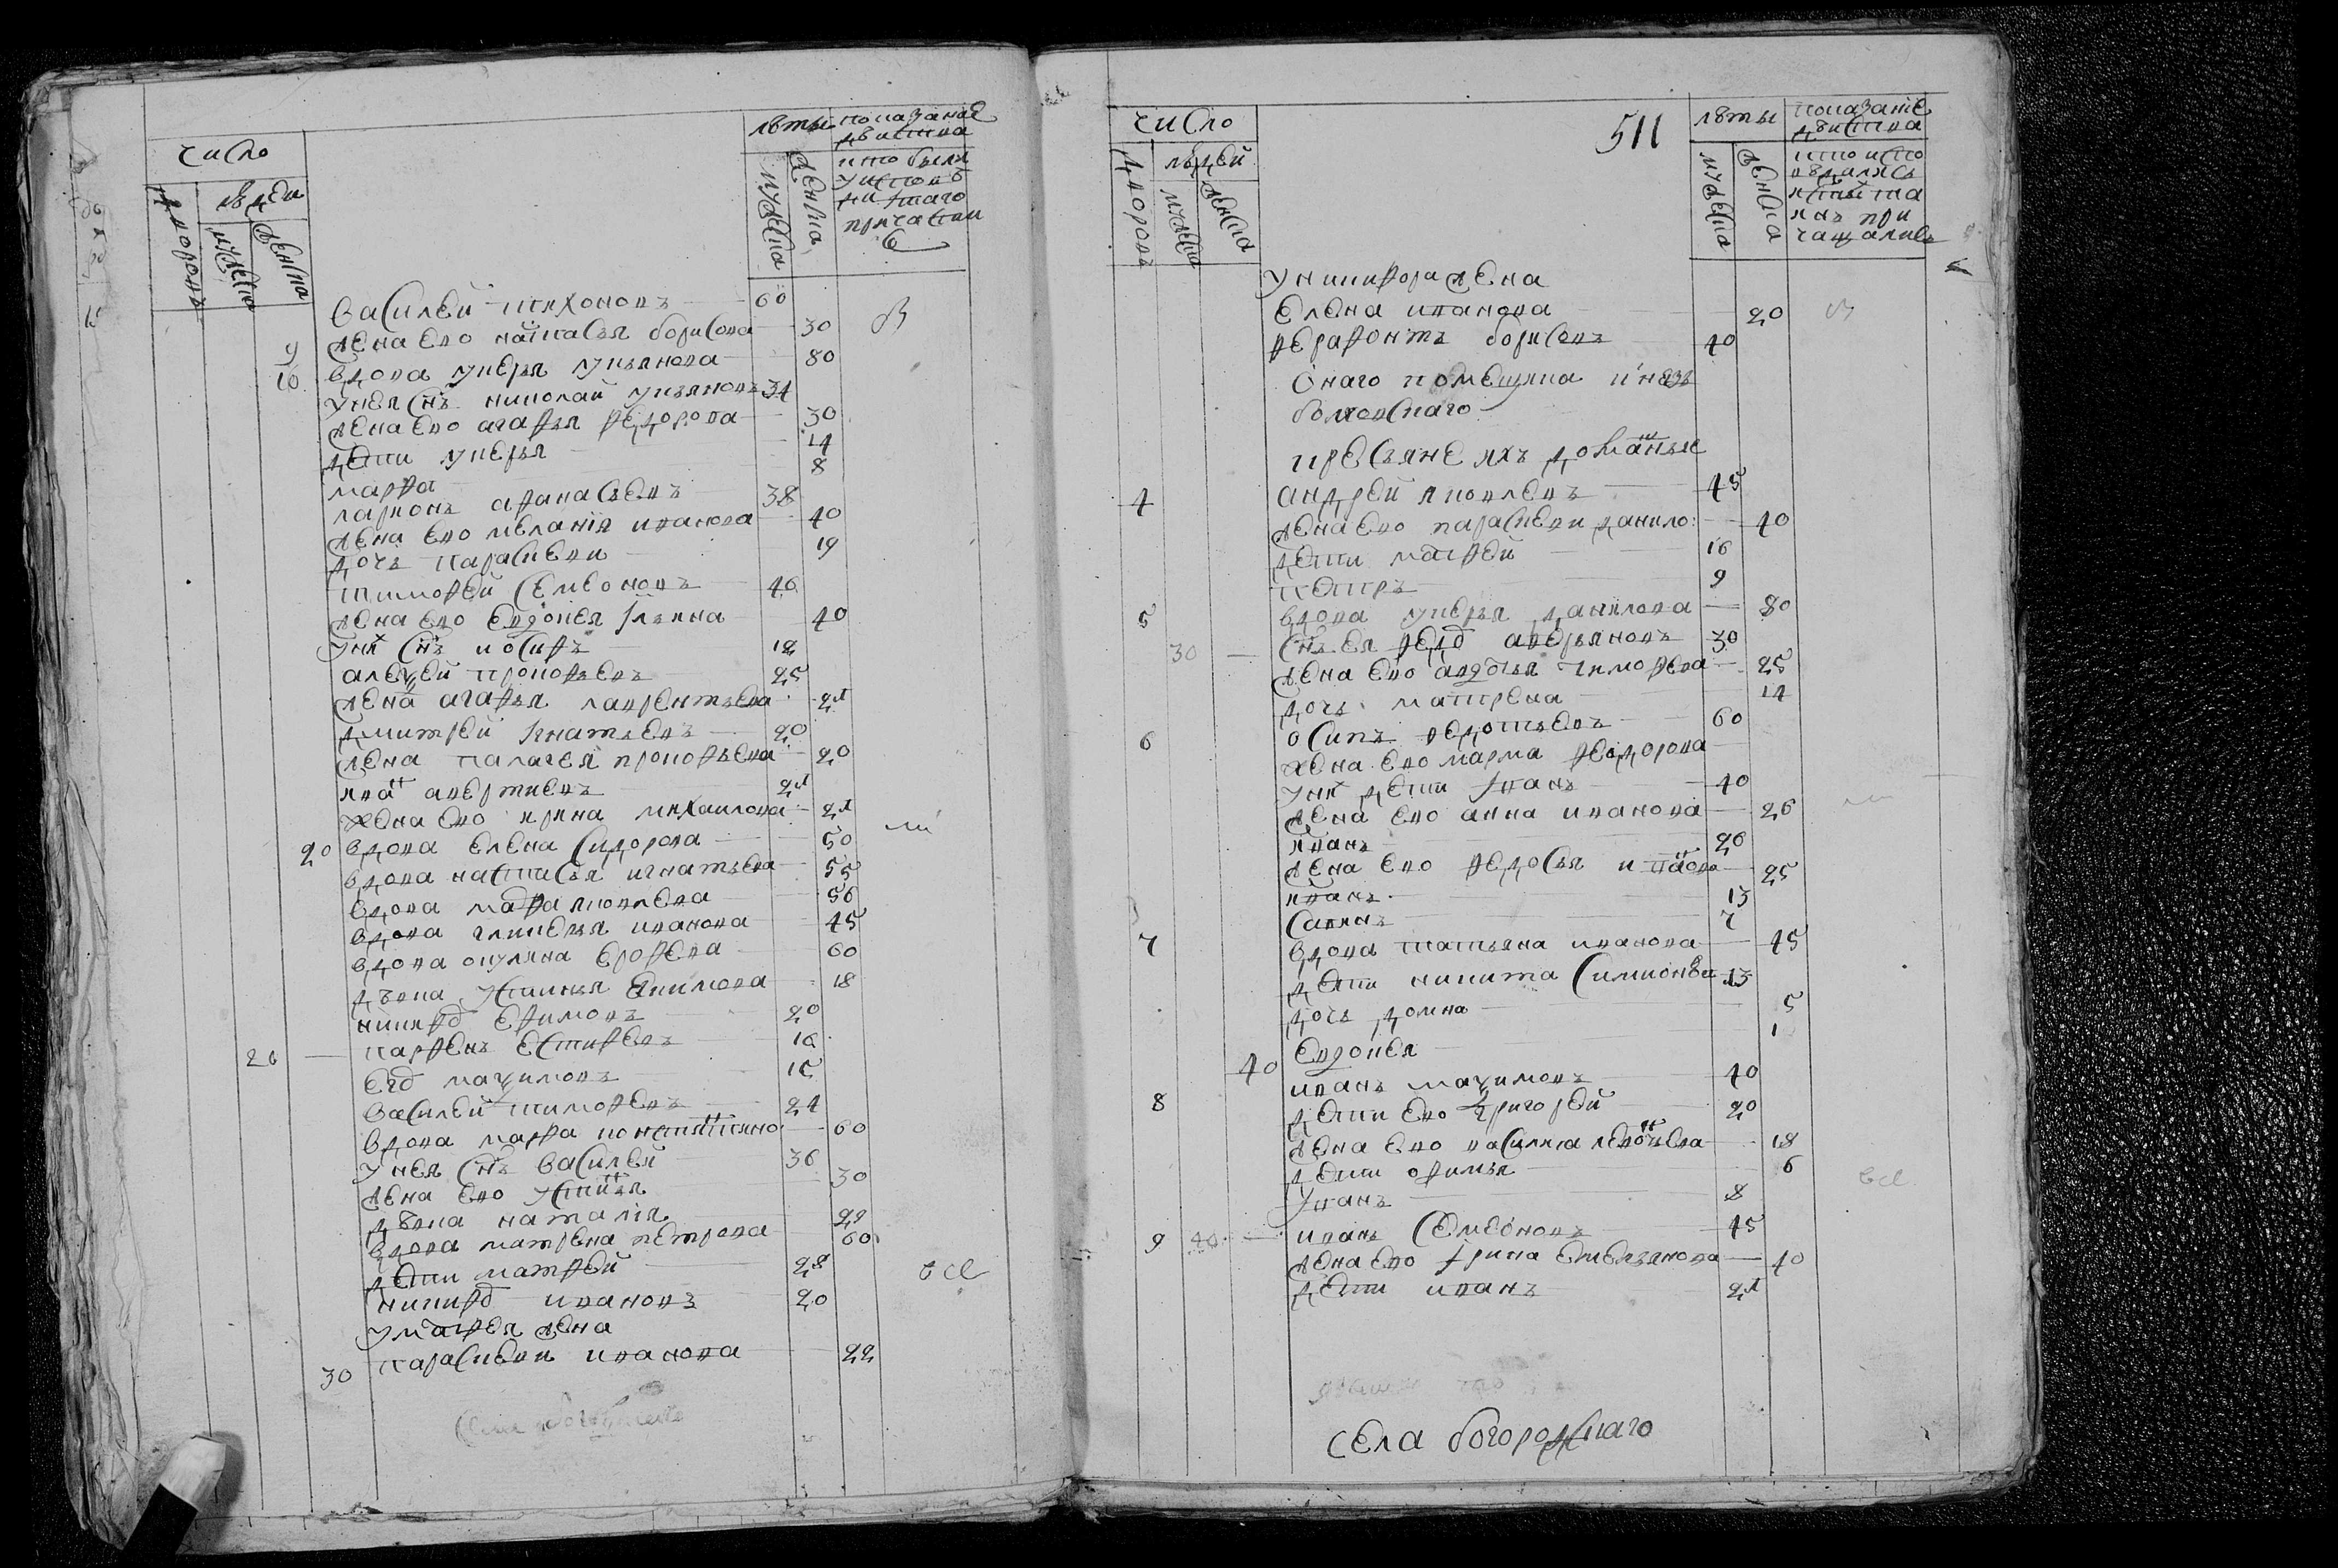 число
дворовъ
людеи
мужеска
женска
лѣты
мужеска
женска
показание
дѣиства
кто были
у исповѣ
ди и таго
причастии
василеи тихоновъ 60
жена ево настасья борисова 30
9
вдова лукерья лукьянова 80
10
у нея снъ николаи лукьяновъ 34
жена ево агафья федорова 30
дети лукерья 14
марфа 8
ларионъ афанасьевъ 38
жена ево мелания иванова 40
дочь параскеви 19
тимофеи семеоновъ 46
жена ево евдокея ильина 40
у них снъ иосифъ 12
алексеи прокофьевъ 25
жена агафья лаврентьева 21
дмитреи игнатьевъ 20
жена палагея прокофьева 20
жена ево ирина михаилова 21
20 вдова елена сидорова 50
вдова настасья игнатьева 55
вдова марфа яковлева 50
вдова гликерья иванова 45
вдова окулина ерофева 60
девка устинья екимова 18
никифо ефимовъ 20
26 парфенъ естифевъ 16
его маѯимовъ 15
василеи тимофевъ 24
вдова марфа констянтино 60
у нея снъ василеи 36
жена ево устинья 30
девка наталия 22
вдова матрена петрова 60
дети матфеи 28
никифо ивановъ 20
у матфея жена
30 параскеви иванова 22
всѣ
511
число
дворовъ
людеи
мужеска
женска
лѣты
мужеска
женска
показание
дѣиства
кто испо
ведался
чащались
у никифора жена
елена иванова 20
ферафонтъ борисовъ 40
онаго помещика князь
волконскаго
кресьяне ихъ домашные
4 андреи яковлевъ 45
жена ево параскеви данило: 40
дети матфеи 16
петръ 9
5 вдова лукерья данилова 80
30 снъ ея федо аверьяновъ 30
жена ево авдотья тимофева 25
дочь матрена 14
6 осипъ федотьевъ 60
жена ево марфа феодорова
у них дети иванъ 40
жена ево анна иванова 26
иванъ 20
жена ево федосья 25
иванъ 13
савинъ 7
7 вдова татьяна иванова 45
дети никита симионовъ 13
дочь домна 5
40 евдокея 1
8 иванъ маѯимовъ 40
дети ево григореи 20
жена ево василиса 18
дети офимья 6
иванъ 8
9 40 иванъ семеоновъ 45
жена ево ирина емельянова 40
дети иванъ 21
всѣ
села богородскаго